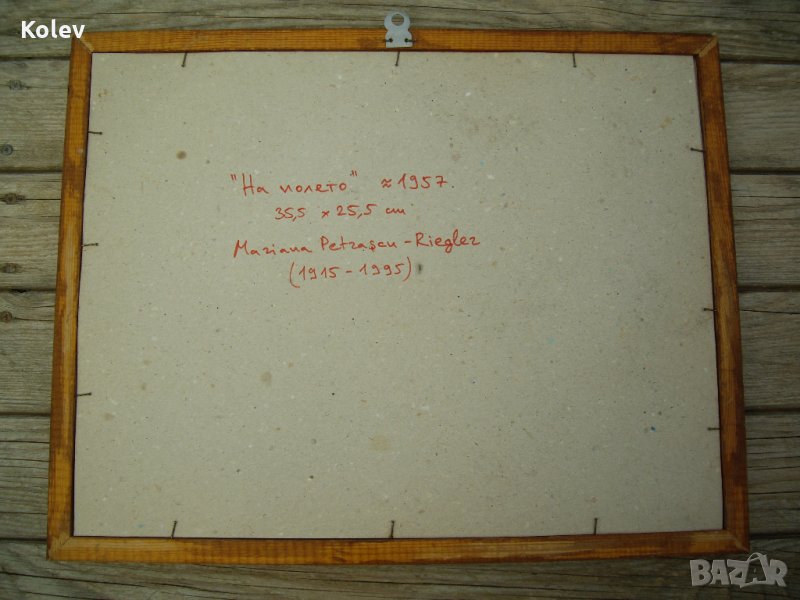 Kolev
"На полето" ≈ 1957.
35,5 x 25,5 cm
Mariana Petraşcu - Riegler
(1915 - 1995)
BAZAR